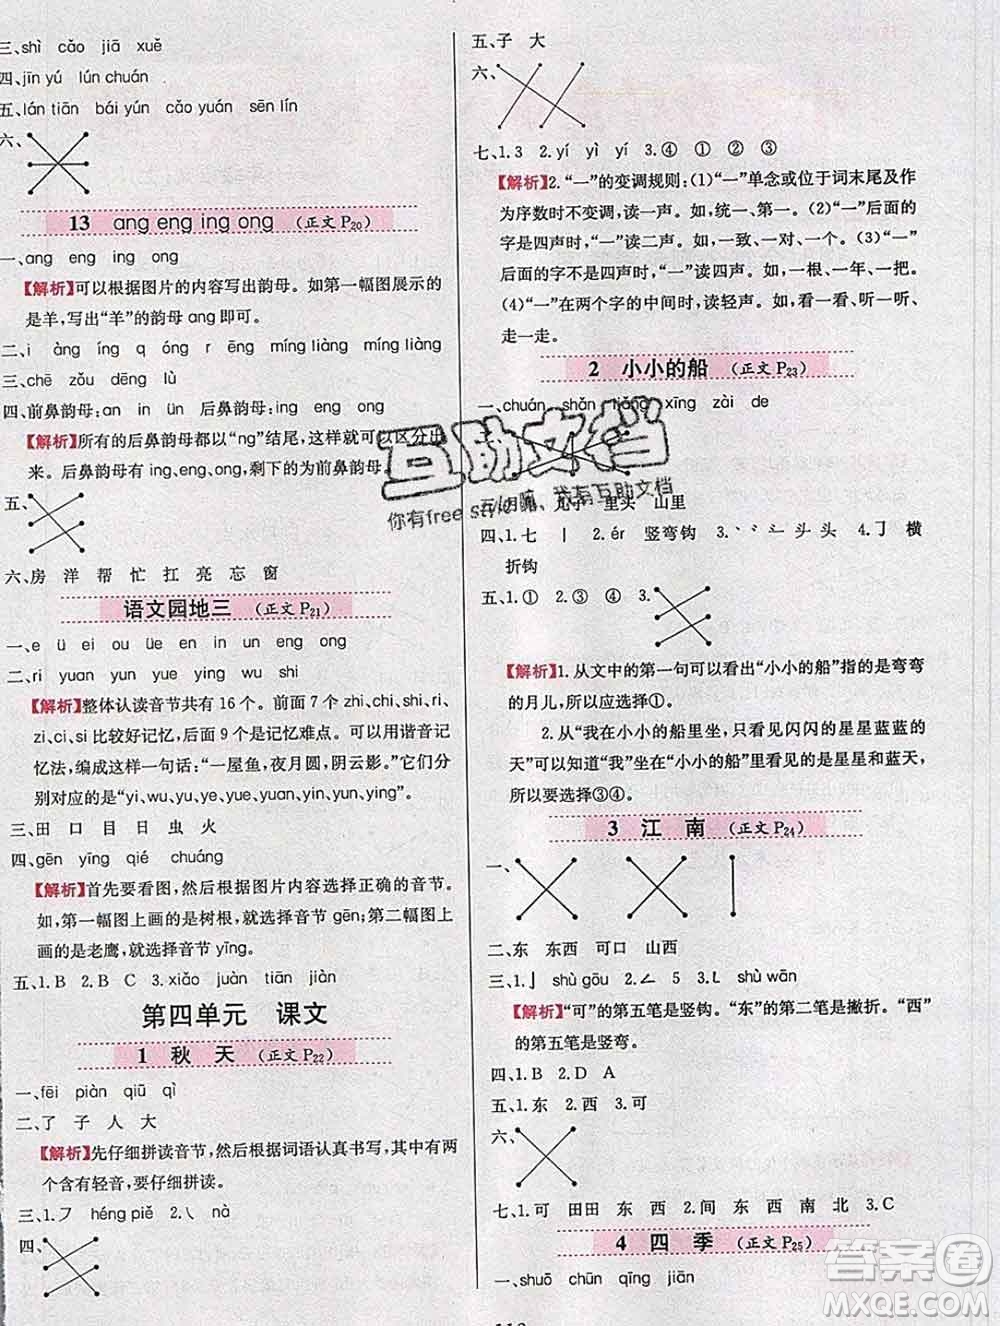 三、shì cǎo jiā xuě
四、jīn yú lún chuán
五、lán tiān bái yún cǎo yuán sēn lín
六、
13 ang eng ing ong (正文P20)
一、ang eng ing ong
【解析】可以根据图片的内容写出韵母。如第一幅图展示的
是羊,写出“羊”的韵母 ang 即可。
二、i àng íng q óng r ēng míng liàng míng liàng
三、chē zǒu dēng lù
四、前鼻韵母:an in ün 后鼻韵母:ing eng ong
【解析】所有的后鼻韵母都以“ng”结尾,这样就可以区分出
来。后鼻韵母有 ing、eng、ong,剩下的为前鼻韵母。
五、
六、房 洋 帮 忙 扛 亮 忘 窗
语文园地三 (正文P21)
一、e ü ei ou üe en in un eng ong
二、ri yuan yun yue ying wu shi
【解析】整体认读音节共有 16 个。前面 7 个 zhi、chi、shi、ri、
zi、ci、si 比较好记忆,后面 9 个是记忆难点。可以用谐音记
忆法,编成这样一句话:“一屋鱼,夜月圆,阴云影。”它们分
别对应的是“yi、wu、yu、ye、yue、yuan、yin、yun、ying”。
三、田 口 目 日 虫 火
四、gēn yīng qié chuáng
【解析】首先要看图,然后根据图片内容选择正确的音节。
如,第一幅图上画的是树根,就选择音节 gēn;第二幅图上
画的是老鹰,就选择音节 yīng。
五、1.B 2.B C 3.xiǎo juàn tiān jiàn
第四单元 课文
1 秋 天 (正文P22)
一、fēi piàn qiū qì
二、了 子 人 大
【解析】先仔细拼读音节,然后根据词语认真书写,其中有两
个含有轻音,要仔细拼读。
三、1.㇇ héng piě 2.㇏ nà
四、
五、子 大
六、
七、1.3 2.yí yì yí 3.④ ① ② ③
【解析】2.“一”的变调规则:(1)“一”单念或位于词末尾及作
为序数时不变调,读一声。如,统一、第一。(2)“一”后面的
字是四声时,“一”读二声。如,一致、一对、一次。(3)“一”
后面的字不是四声时,“一”读四声。如,一根、一年、一把。
(4)“一”在两个字的中间时,读轻声。如,看一看、听一听、
走一走。
2 小小的船 (正文P23)
一、chuán shǎn tóng xīng zài de
互助文档
里头 山里
你有free style/吗、我有互助文档
四、1.七 丨 2.ér 竖弯钩 3.丶丶㇀头头 4.丁 横
折钩
五、1.① 2.③ ④ 3.
【解析】1.从文中的第一句可以看出“小小的船”指的是弯弯
的月儿,所以应选择①。
2.从“我在小小的船里坐,只看见闪闪的星星蓝蓝的
天”可以知道“我”坐在“小小的船”里看见的是星星和蓝天,
所以要选择③④。
3 江 南 (正文P24)
一、
二、东 东西 可口 山西
三、1.亅 shù gōu 2.㇜ 5 3.㇄ shù wān
【解析】“可”的第五笔是竖钩。“东”的第二笔是撇折。“西”
的第五笔是竖弯。
四、1.B 2.D A
五、1.东 2.西 3.可
六、
七、1.可 田田 东 西 2.间 东 西 南 北 3.C
4 四 季 (正文P25)
一、shuō chūn qīng jiān
答案圈
MXQE.COM